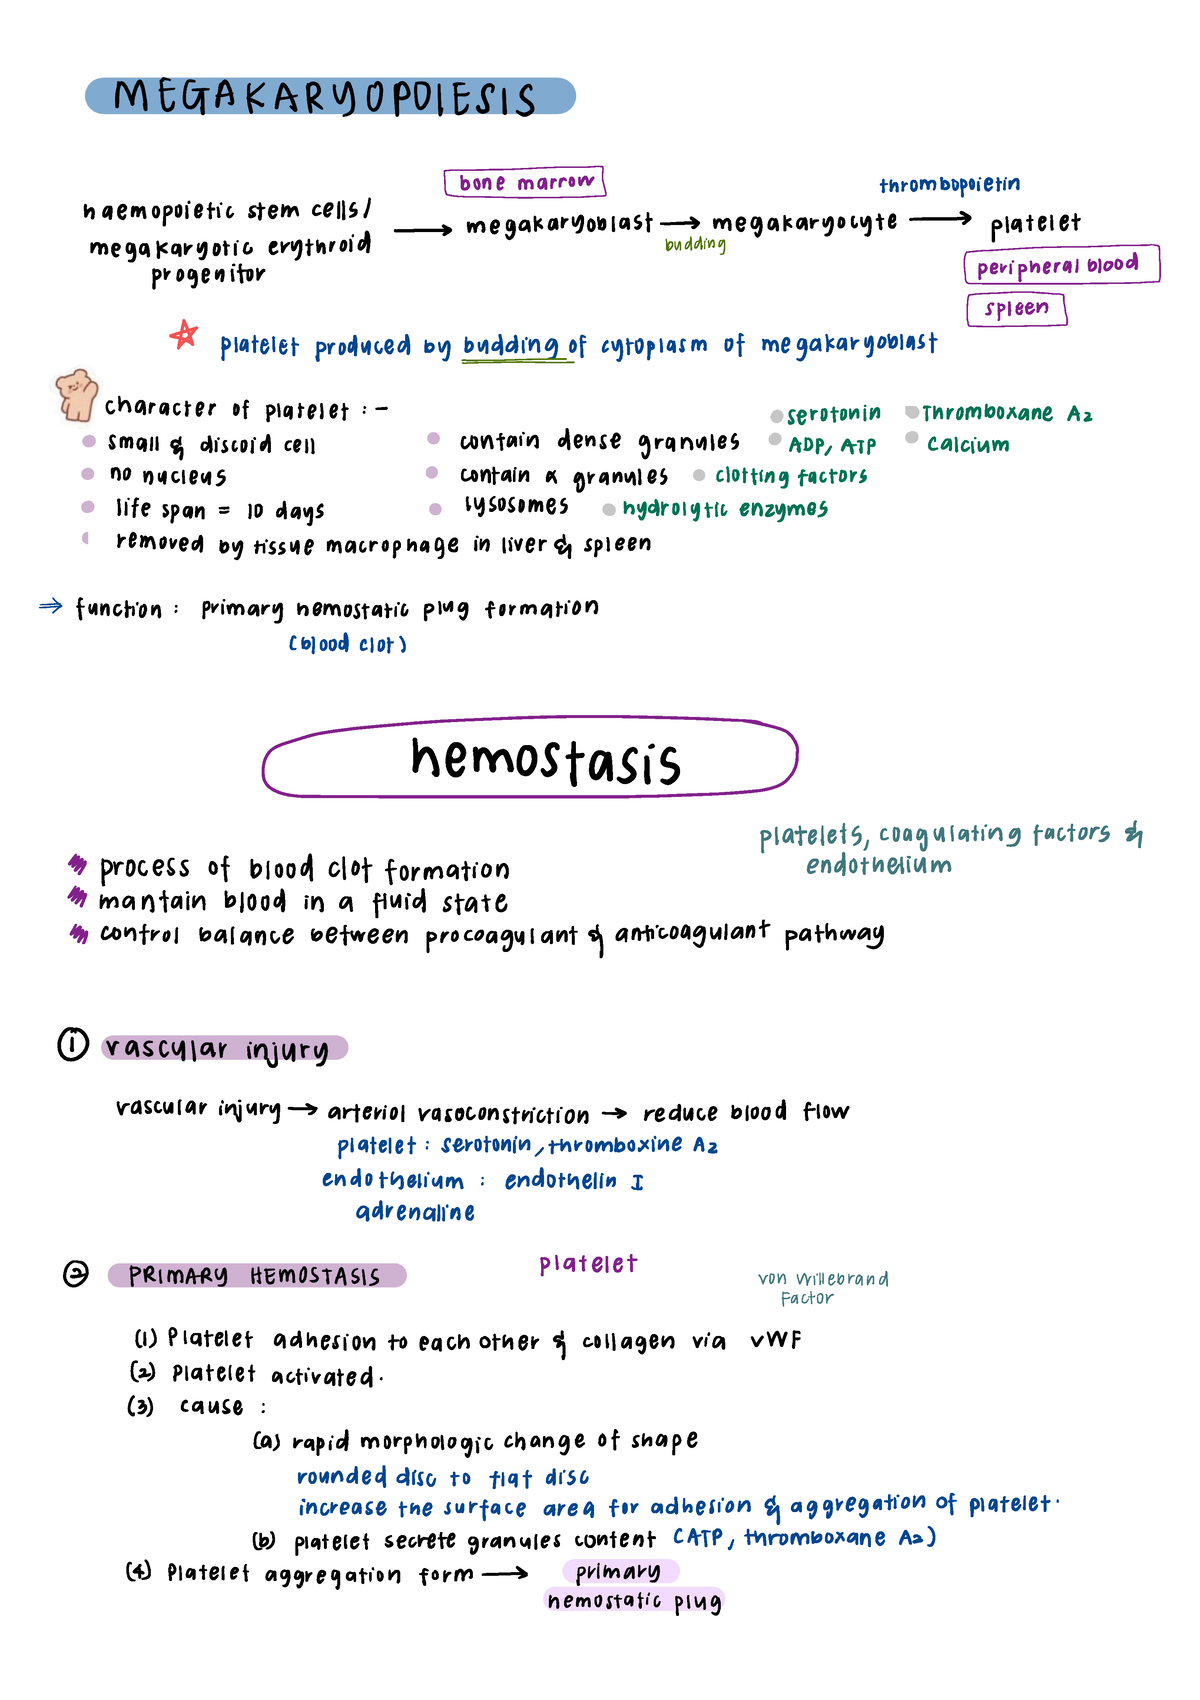 MEGAKARYOPOIESIS
bone marrow
thrombopoietin
haemopoietic stem cells/
megakaryotic erythroid
progenitor
megakaryoblast → megakaryocyte → platelet
budding
peripheral blood
spleen
platelet produced by budding of cytoplasm of megakaryoblast
character of platelet :-
small & discoid cell
no nucleus
life span = 10 days
removed by tissue macrophage in liver & spleen
contain dense granules
serotonin
Thromboxane A2
ADP, ATP
Calcium
contain α granules
clotting factors
lysosomes
hydrolytic enzymes
⇒ function : primary hemostatic plug formation
(blood clot)
hemostasis
platelets, coagulating factors &
endothelium
process of blood clot formation
mantain blood in a fluid state
control balance between procoagulant & anticoagulant pathway
① vascular injury
vascular injury → arteriol vasoconstriction → reduce blood flow
platelet : serotonin, thromboxine A2
endothelium : endothelin I
adrenaline
② PRIMARY HEMOSTASIS
platelet
von Willebrand
Factor
(1) Platelet adhesion to each other & collagen via vWF
(2) Platelet activated.
(3) cause :
(a) rapid morphologic change of shape
rounded disc to flat disc
increase the surface area for adhesion & aggregation of platelet.
(b) platelet secrete granules content (ATP, thromboxane A2)
(4) Platelet aggregation form → primary
hemostatic plug